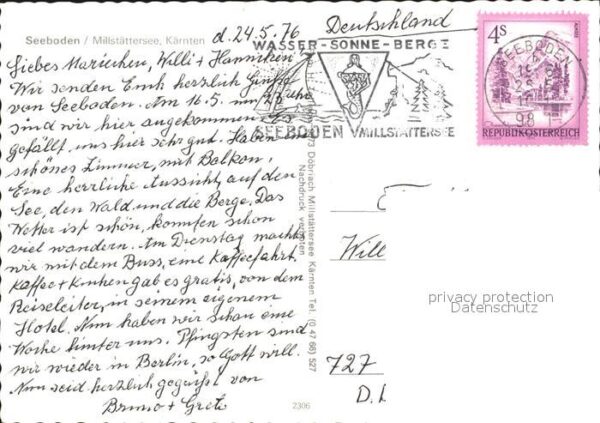 Seeboden / Millstättersee, Kärnten
d. 24.5.76
Deutschland
Liebes Mariechen, Willi + Hannchen
Wir senden Euch herzliche Grüße
von Seeboden. Am 16.5. um 23 Uhr
sind wir hier angekommen. Es
gefällt uns hier sehr gut. Haben ein
schönes Zimmer, mit Balkon,
Eine herrliche Aussicht, auf den
See, den Wald und die Berge. Das
Wetter ist schön, konnten schon
viel wandern. Am Dienstag machten
wir mit dem Buss, eine Kaffeefahrt
Kaffe + Kuchen gab es gratis, von dem
Reiseleiter, in seinem eigenem
Hotel. Nun haben wir schon eine
Woche hinter uns. Pfingsten sind
wir wieder in Berlin, so Gott will.
Nun seid herzlich gegrüßt von
Bruno + Grete
WASSER-SONNE-BERGE
SEEBODEN MILLSTÄTTERSEE
4S
REPUBLIK ÖSTERREICH
SEEBODEN
98
Döbriach Millstättersee Kärnten Tel. (0 47 66) 527
Nachdruck verboten
Will
privacy protection
Datenschutz
727
D.
2306